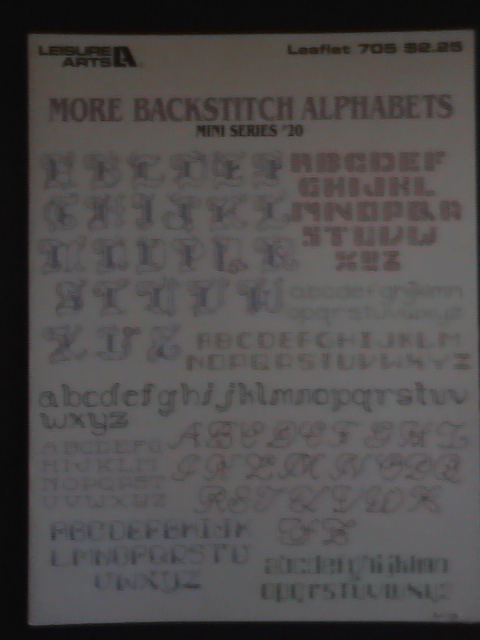 LEISURE ARTS
Leaflet 705 $2.25
MORE BACKSTITCH ALPHABETS
MINI SERIES #20
A B C D E F
G H I J K L
M N O P Q R
S T U V W
X Y Z
ABCDEF
GHIJKL
MNOPQR
STUVW
XYZ
abcdefghijklmn
opqrstuvwxyz
ABCDEFGHIJKLM
NOPQRSTUVWXYZ
abcdefghijklmnopqrstuv
wxyz
ABCDEFG
HIJKLM
NOPQRST
UVWXYZ
ABCDEFGHI
JKLMNOPQ
RSTUVWX
YZ
ABCDEFGHIJK
LMNOPQRSTU
VWXYZ
abcdefghijklmn
opqrstuvwxyz